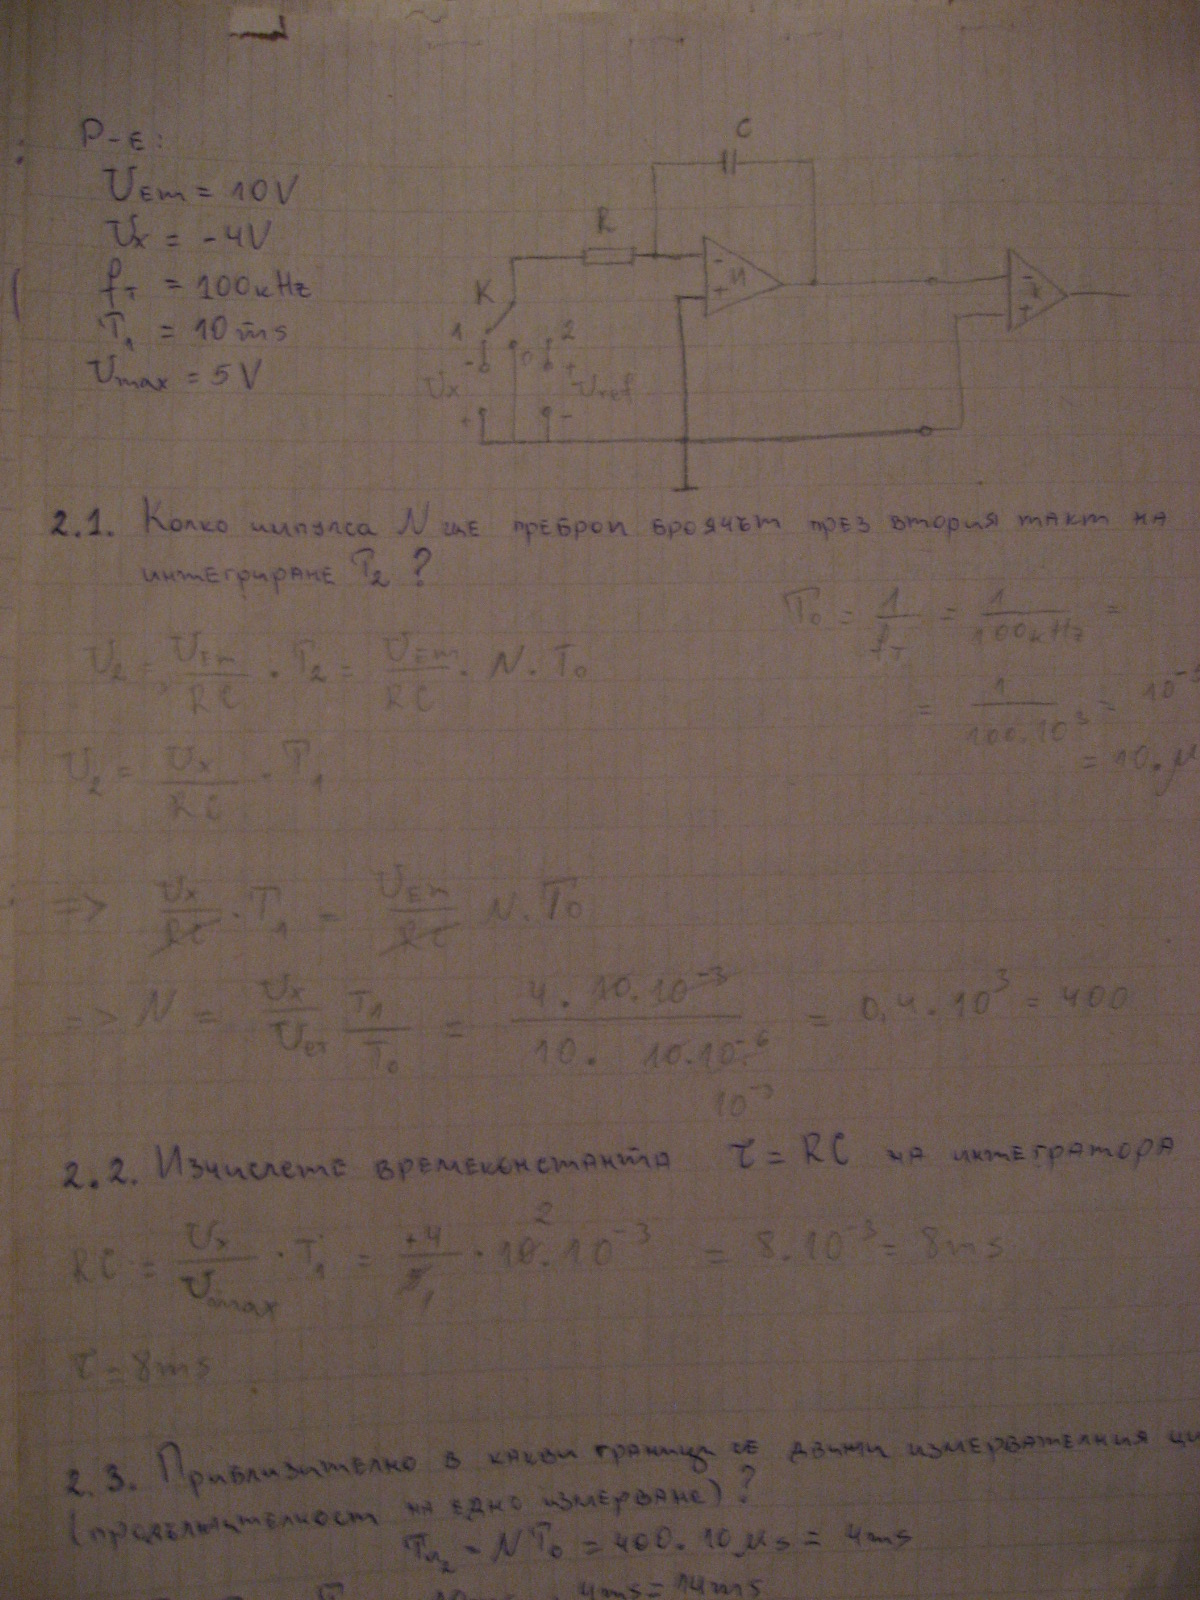 Р-е:
Uет = 10V
Ux = -4V
fт = 100кHz
T₁ = 10ms
Umax = 5V
C
R
K
И
-
+
1
2
0
-
+
Ux
Uref
+
-
-
+
2.1. Колко импулса N ще преброи броячът през втория такт на
интегриране T₂ ?
T₀ = 1/fт = 1/100кHz =
= 1/100.10³ =
= 10.μ
U₂ = Uет/RC . T₂ = Uет/RC . N . T₀
U₂ = Ux/RC . T₁
=> Ux/RC . T₁ = Uет/RC N . T₀
=> N = Ux/Uет T₁/T₀ = 4 . 10.10⁻³/10 . 10.10⁻⁶ = 0,4.10³ = 400
10⁻³
2.2. Изчислете времеконстанта τ = RC на интегратора
RC = Ux/Umax . T₁ = +4/5 . 10.10⁻³ = 8.10⁻³ = 8ms
2
1
τ = 8ms
2.3. Приблизително в какви граници се движи измервателния ци
(продължителност на едно измерване) ?
= NT₀ = 400. 10μs = 4ms
4ms = 14ms